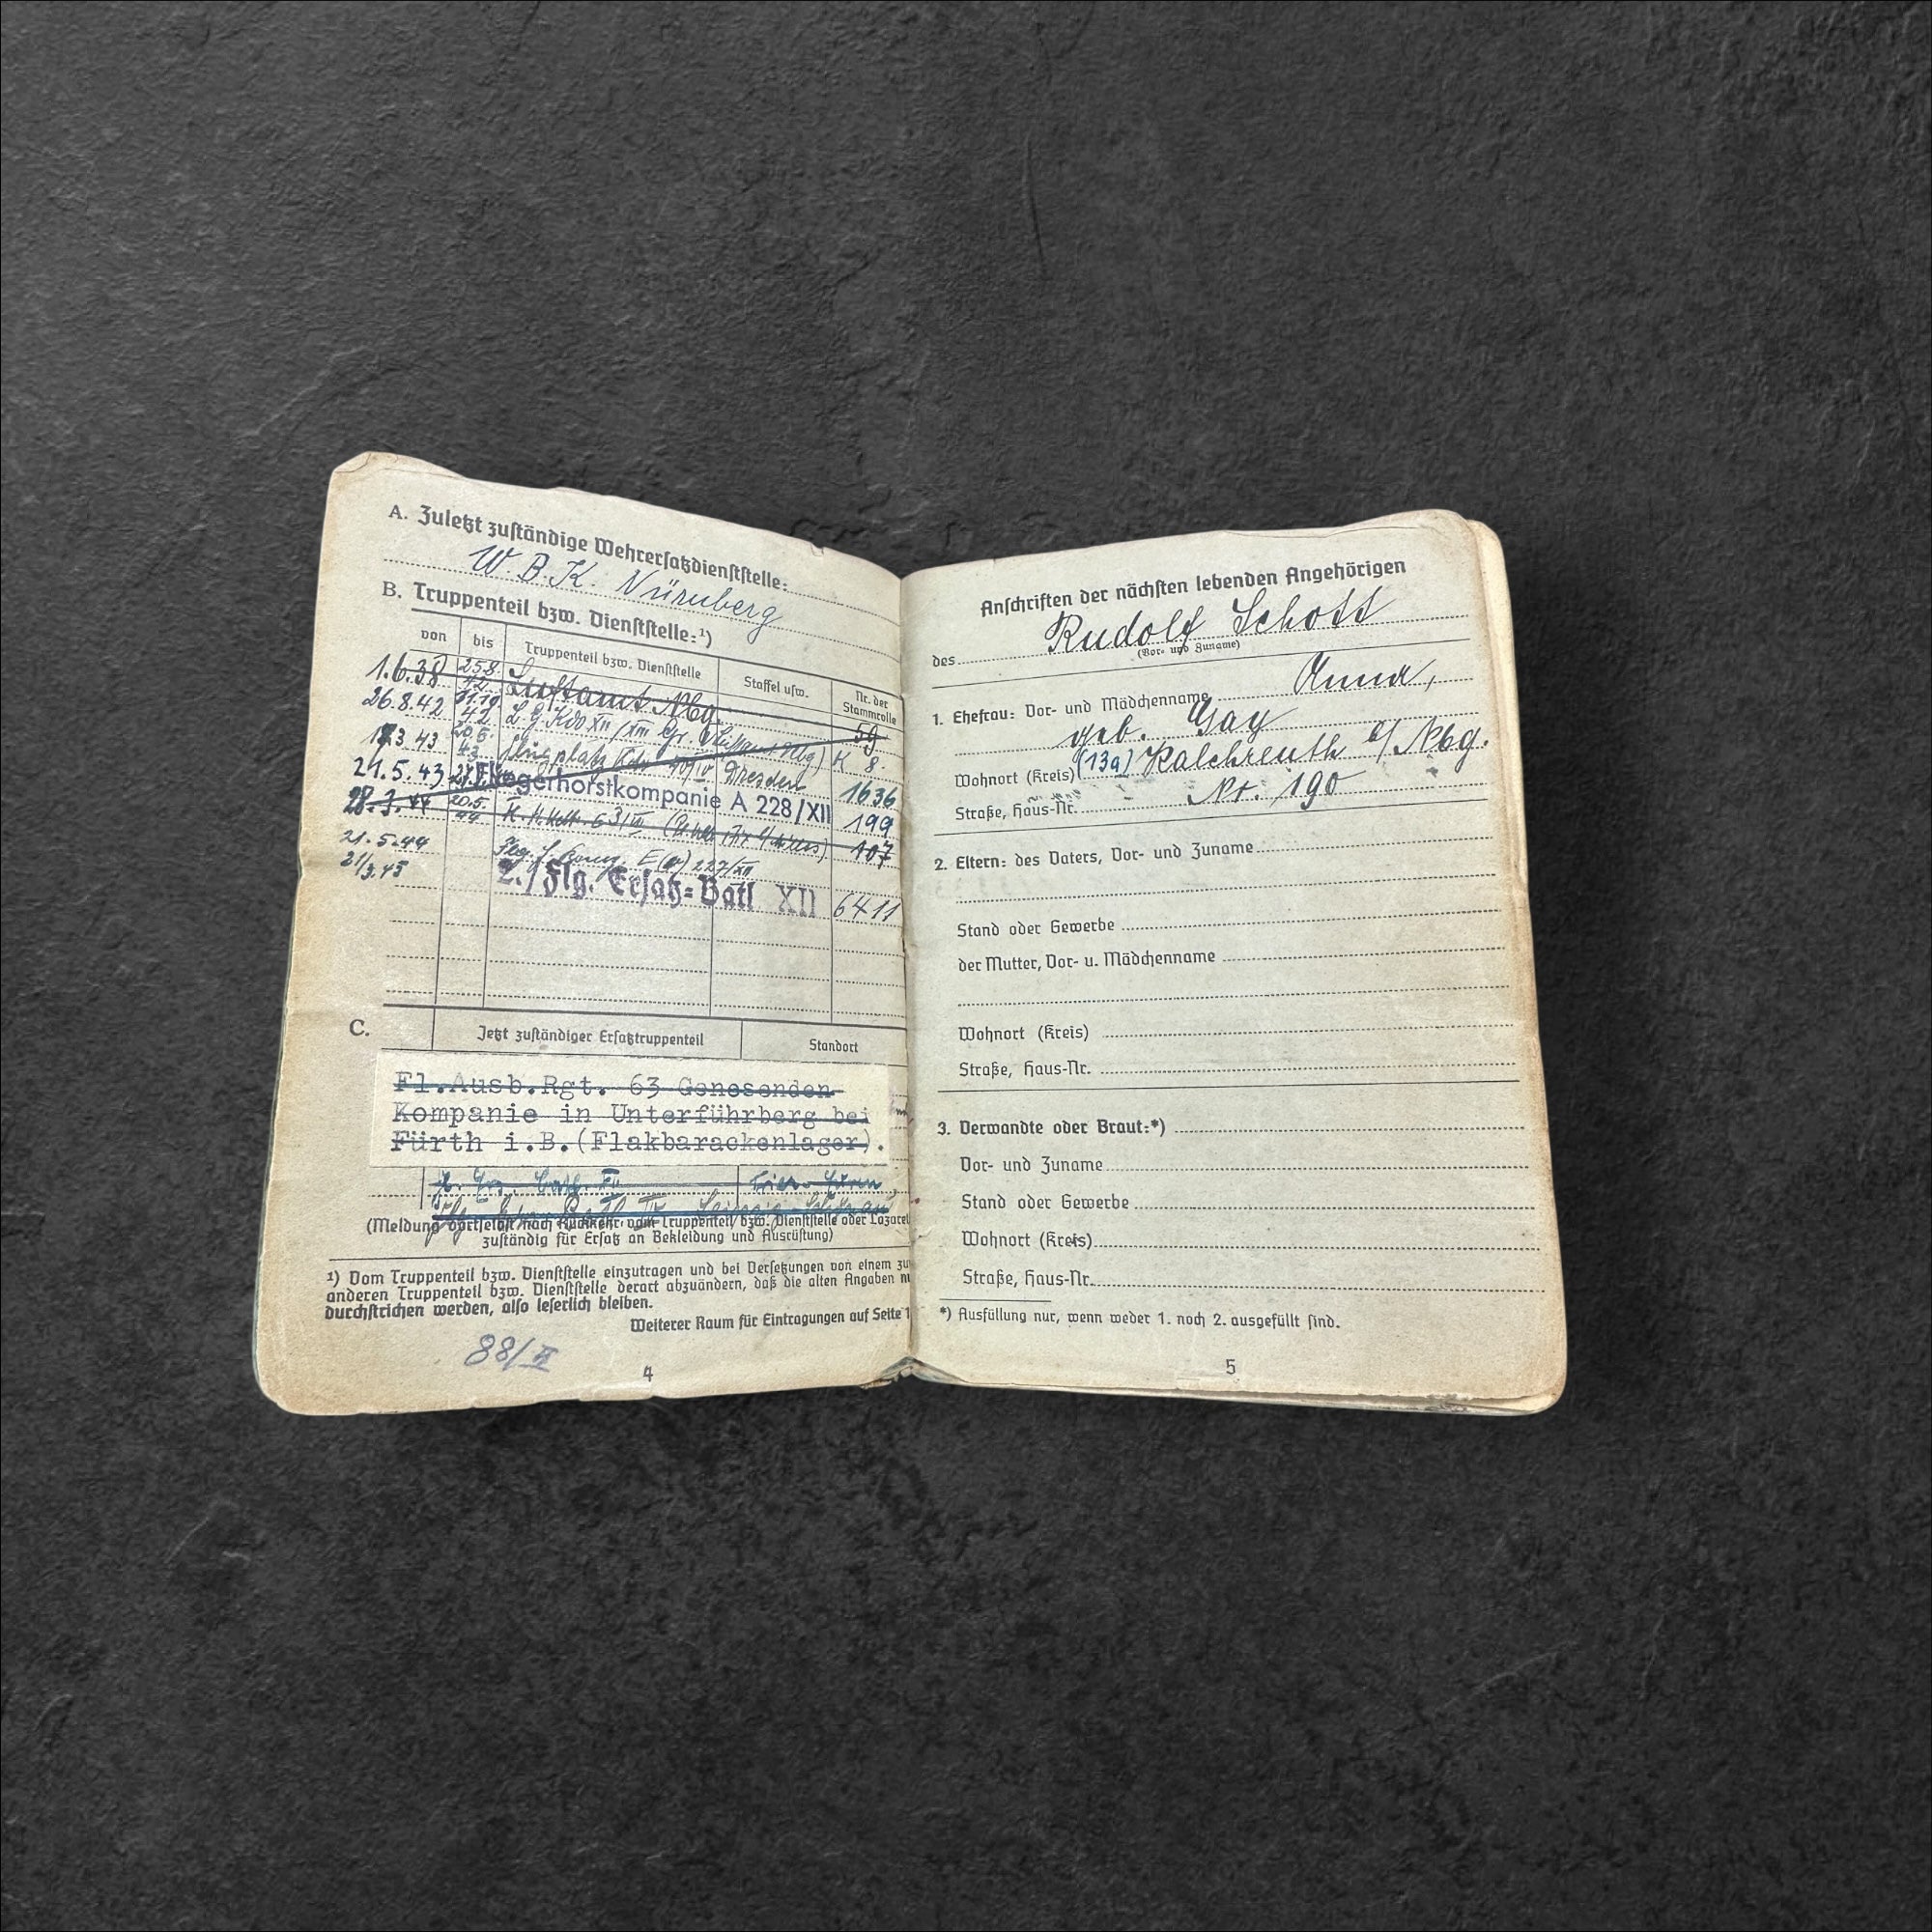 A. Zuletzt zuständige Wehrersatzdienststelle:
W. B. K. Nürnberg
B. Truppenteil bzw. Dienststelle:¹)
von bis Truppenteil bzw. Dienststelle Staffel usw. Nr. der Stammrolle
1.6.38 25.8. 42 Luftamt Nbg. 59
26.8.42 11. 42 L. G. Kdo XII/XIII Gr. (Luftamt Nbg) K 8.
3.43 20.5. 43. Flugplatz Kdo Dresden 1636
21.5.43 Fliegerhorstkompanie A 228/XII 199
28.3.44 20.5. 44 107
21.5.44 227/XII
21/3.45 2./Flg. Ersatz=Batl XII 6411
C. Jetzt zuständiger Ersatztruppenteil Standort
Fl.Ausb.Rgt. 63 Genesenden-
Kompanie in Unterführberg bei
Fürth i.B.(Flakbarackenlager).
(Meldung dortselbst nach Rückkehr vom Truppenteil bzw. Dienststelle oder Lazaret
zuständig für Ersatz an Bekleidung und Ausrüstung)
¹) Vom Truppenteil bzw. Dienststelle einzutragen und bei Versetzungen von einem zu
anderen Truppenteil bzw. Dienststelle derart abzuändern, daß die alten Angaben nu
durchstrichen werden, also leserlich bleiben.
Weiterer Raum für Eintragungen auf Seite 1
88/II
4
Anschriften der nächsten lebenden Angehörigen
des Rudolf Schott
(Vor- und Zuname)
1. Ehefrau: Vor- und Mädchenname Anna,
geb. Gay
Wohnort (Kreis) (13a) Kalchreuth b/ Nbg.
Straße, Haus-Nr. Nr. 190
2. Eltern: des Vaters, Vor- und Zuname
Stand oder Gewerbe
der Mutter, Vor- u. Mädchenname
Wohnort (Kreis)
Straße, Haus-Nr.
3. Verwandte oder Braut:*)
Vor- und Zuname
Stand oder Gewerbe
Wohnort (Kreis)
Straße, Haus-Nr.
*) Ausfüllung nur, wenn weder 1. noch 2. ausgefüllt sind.
5